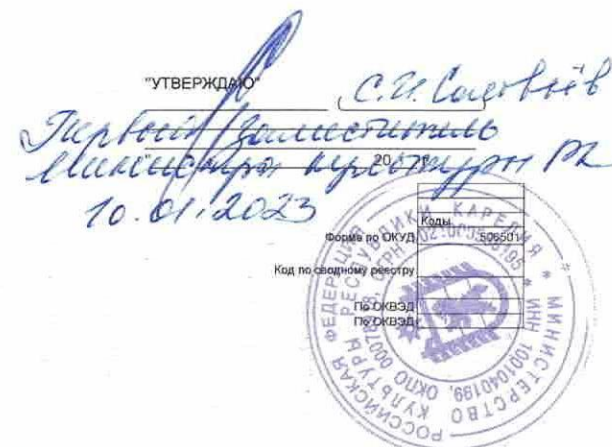 "УТВЕРЖДАЮ"
С.И. Соловьёв
Первый заместитель
Министра культуры РК
" 20 г.
10.01.2023
Коды
Форма по ОКУД 506501
Код по сводному реестру
По ОКВЭД
По ОКВЭД
РОССИЙСКАЯ ФЕДЕРАЦИЯ * МИНИСТЕРСТВО
КУЛЬТУРЫ РЕСПУБЛИКИ КАРЕЛИЯ *
ИНН 1001040199, ОКПО ОГРН